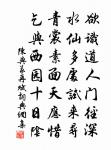 欲識道人門徑深
水仙多處試來尋
青裳素面天應惜
乞與西園十日陰
陳與義再賦詞典網書